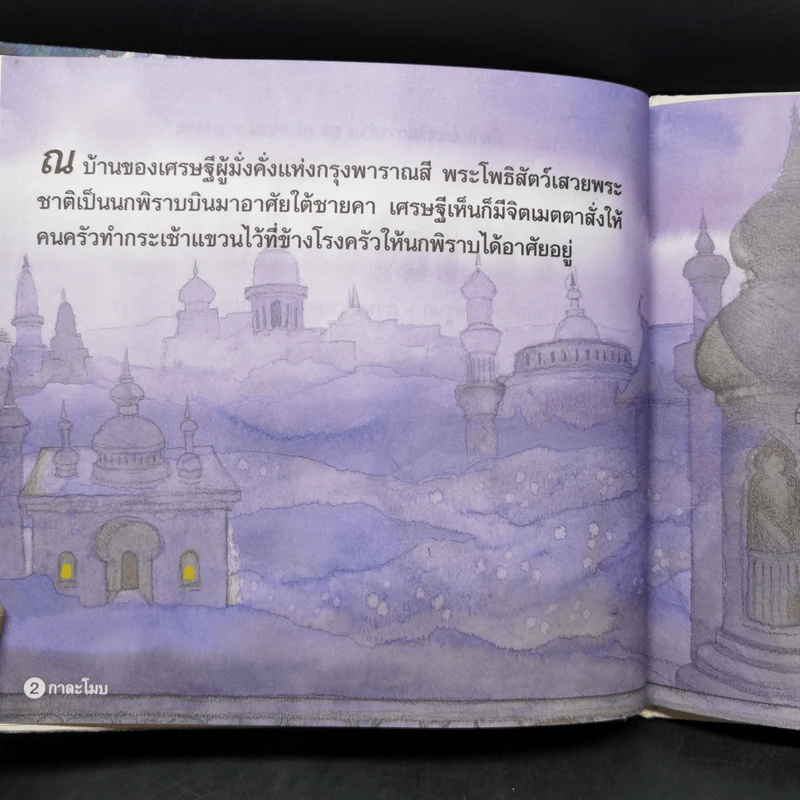 ณ บ้านของเศรษฐีผู้มั่งคั่งแห่งกรุงพาราณสี พระโพธิสัตว์เสวยพระ
ชาติเป็นนกพิราบบินมาอาศัยใต้ชายคา เศรษฐีเห็นก็มีจิตเมตตาสั่งให้
คนครัวทำกระเช้าแขวนไว้ที่ข้างโรงครัวให้นกพิราบได้อาศัยอยู่
2 กาละโมบ